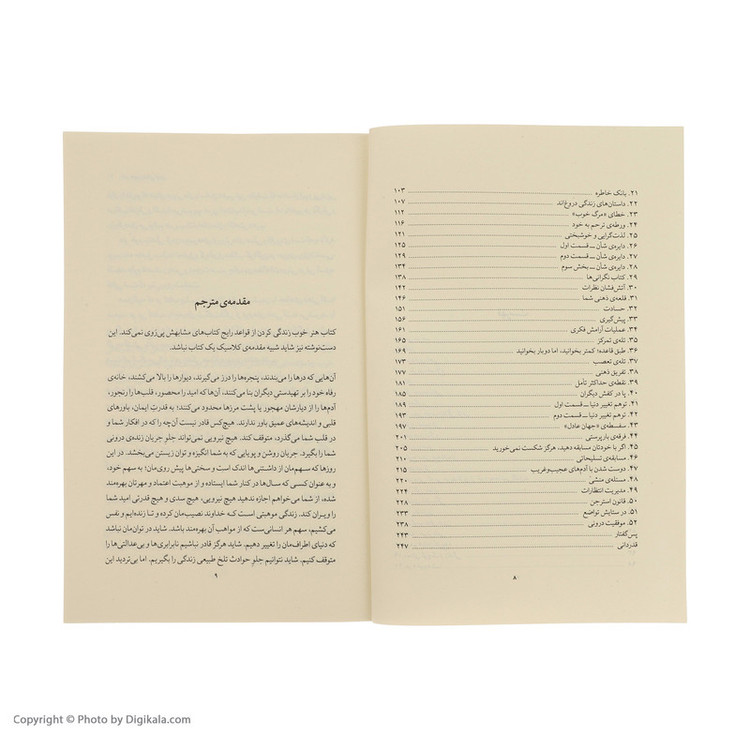 ۲۱. بانک خاطره ۱۰۳
۲۲. داستان‌های زندگی دروغ‌اند ۱۰۷
۲۳. خطای «مرگ خوب» ۱۱۲
۲۴. ورطه‌ی ترحم به خود ۱۱۶
۲۵. لذت‌گرایی و خوشبختی ۱۲۱
۲۶. دایره‌ی شأن ــ قسمت اول ۱۲۵
۲۷. دایره‌ی شأن ــ قسمت دوم ۱۲۹
۲۸. دایره‌ی شأن ــ بخش سوم ۱۳۴
۲۹. کتاب نگرانی‌ها ۱۳۸
۳۰. آتش‌فشان نظرات ۱۴۲
۳۱. قلعه‌ی ذهنی شما ۱۴۶
۳۲. حسادت ۱۵۱
۳۳. پیش‌گیری ۱۵۶
۳۴. عملیات آرامش فکری ۱۶۱
۳۵. تله‌ی تمرکز ۱۶۵
۳۶. طبق قاعده؛ کمتر بخوانید، اما دوباز بخوانید ۱۶۹
۳۷. تله‌ی تعصب ۱۷۳
۳۸. تفریق ذهنی ۱۷۷
۳۹. نقطه‌ی حداکثر تأمل ۱۸۱
۴۰. پا در کفش دیگران ۱۸۵
۴۱. توهم تغییر دنیا ــ قسمت اول ۱۸۹
۴۲. توهم تغییر دنیا ــ قسمت دوم ۱۹۳
۴۳. سفسطه‌ی «جهان عادل» ۱۹۷
۴۴. فرقه‌ی باربرستی ۲۰۱
۴۵. اگر با خودتان مسابقه دهید، هرگز شکست نمی‌خورید ۲۰۵
۴۶. مسابقه‌ی تسلیحاتی ۲۱۰
۴۷. دوست شدن با آدم‌های عجیب‌وغریب ۲۱۵
۴۸. مسئله‌ی منشی ۲۲۰
۴۹. مدیریت انتظارات ۲۲۴
۵۰. قانون استرجن ۲۲۸
۵۱. در ستایش تواضع ۲۳۳
۵۲. موفقیت درونی ۲۳۸
پس‌گفتار ۲۴۳
قدردانی ۲۴۷
۸
مقدمه‌ی مترجم
کتاب هنر خوب زندگی کردن از قواعد رایج کتاب‌های مشابهش پی‌زوی نمی‌کند. این
دست‌نوشته نیز شاید شبیه مقدمه‌ی کلاسیک یک کتاب نباشد.
آن‌هایی که درها را می‌بندند، پنجره‌ها را درز می‌گیرند، دیوارها را بالا می‌کشند، خانه‌ی
رفاه خود را بر تهیدستی دیگران بنا می‌کنند، آن‌ها که امید را محصور، قلب‌ها را رنجور،
آدم‌ها را از دیارشان مهجور یا پشت مرزها محدود می‌کنند؛ به قدرت ایمان، باورهای
قلبی و اندیشه‌های عمیق باور ندارند. هیچ‌کس قادر نیست آن‌چه را که در افکار شما و
در قلب شما می‌گذرد، متوقف کند. هیچ نیرویی نمی‌تواند جلو جریان زندگی درونی
شما را بگیرد. جریان روشن و پویایی که به شما انگیزه و توان زیستن می‌بخشد. در این
روزها که سهم‌مان از داشتنی‌ها اندک است و سختی‌ها پیش روی‌مان؛ به سهم خود،
و به عنوان کسی که سال‌ها در کنار شما ایستاده و از موهبت اعتماد و مهرتان بهره‌مند
شده، از شما می‌خواهم اجازه ندهید هیچ نیرویی، هیچ سدی و هیچ قدرتی امید شما
را ویران کند. زندگی موهبتی است که خداوند نصیب‌مان کرده و تا زنده‌ایم و نفس
می‌کشیم، سهم هر انسانی‌ست که از مواهب آن بهره‌مند باشد. شاید در توان‌مان نباشد
که دنیای اطراف‌مان را تغییر دهیم، شاید هرگز قادر نباشیم نابرابری‌ها و بی‌عدالتی‌ها را
متوقف کنیم. شاید نتوانیم جلو حوادث تلخ طبیعی زندگی را بگیریم، اما بی‌تردید این
۹
Copyright © Photo by Digikala.com